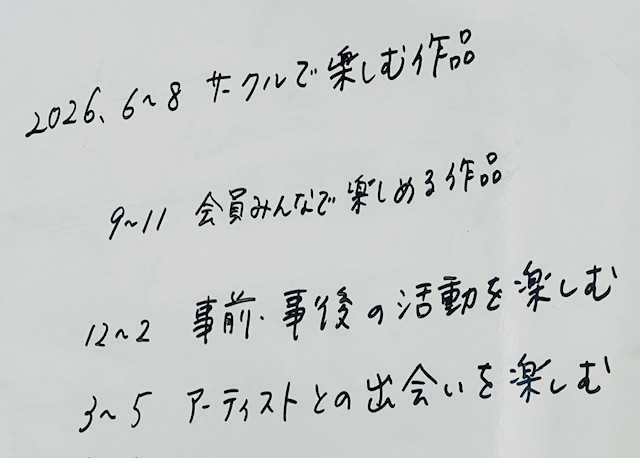 2026、6~8 サークルで楽しむ作品
9~11 会員みんなで楽しめる作品
12~2 事前・事後の活動を楽しむ
3~5 アーティストとの出会いを楽しむ